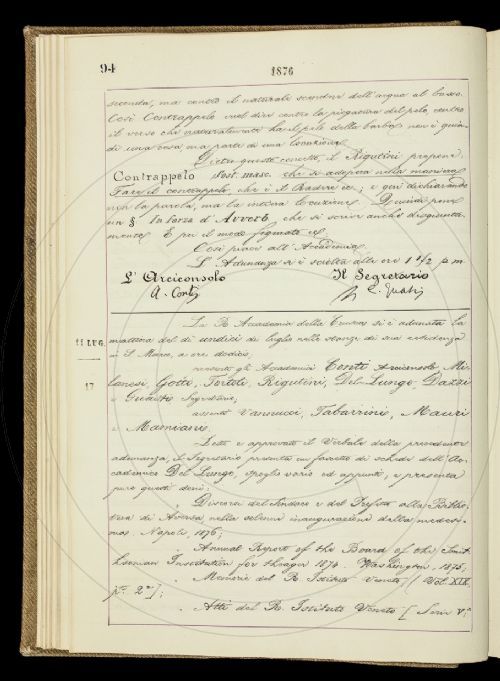 94
1876
seconda, ma contro il naturale scendere dell'acqua al basso.
Così Contrappelo vuol dire contro la piegatura del pelo, contro
il verso che naturalmente ha il pelo della barba; non è quin-
di una cosa ma parte di una locuzione.
Dietro questi concetti, il Rigutini propone:
Contrappelo Sost. masc. che si adopera nella maniera
Fare il contrappelo, che è il Radere ec; e così dichiarando
non la parola, ma la intera locuzione. Di
un § In forza d'Avverb. che si scrive anche disgiunta-
mente. E per il modo figurato ec
Così piace all'Accademia.
L'Adunanza si è sciolta alle ore 1 1/2 p m
L'Arciconsolo Il Segretario
A. Conti C. Guasti
La R. Accademia della Crusca si è adunata la
11 LUG. mattina del dì undici di luglio nelle stanze di sua residenza
in S. Marco, a ore dodici,
presenti gli Accademici Conti Arciconsolo, Mi-
17 lanesi, Gotti, Tortoli, Rigutini, Del Lungo, Dazzi
e Guasti Segretario,
assenti Vannucci, Tabarrini, Mauri
e Mamiani.
Letto e approvato il Verbale della precedente
adunanza, il Segretario presenta un fascetto di schede dell'Ac-
cademico Del Lungo, spoglio vario ed appunti; e presenta
pure questi doni:
Discorsi del Sindaco e del Prefetto alla Biblio-
teca di Aversa nella solenne inaugurazione della medesi-
ma. Napoli, 1876;
Annual Report of the Board of the Smit-
hsonian Institution for the year 1874. Washington, 1875;
Memorie del R. Istituto Veneto [Vol. XIX,
p.te 2.a];
Atti del R. Istituto Veneto [Serie V.a